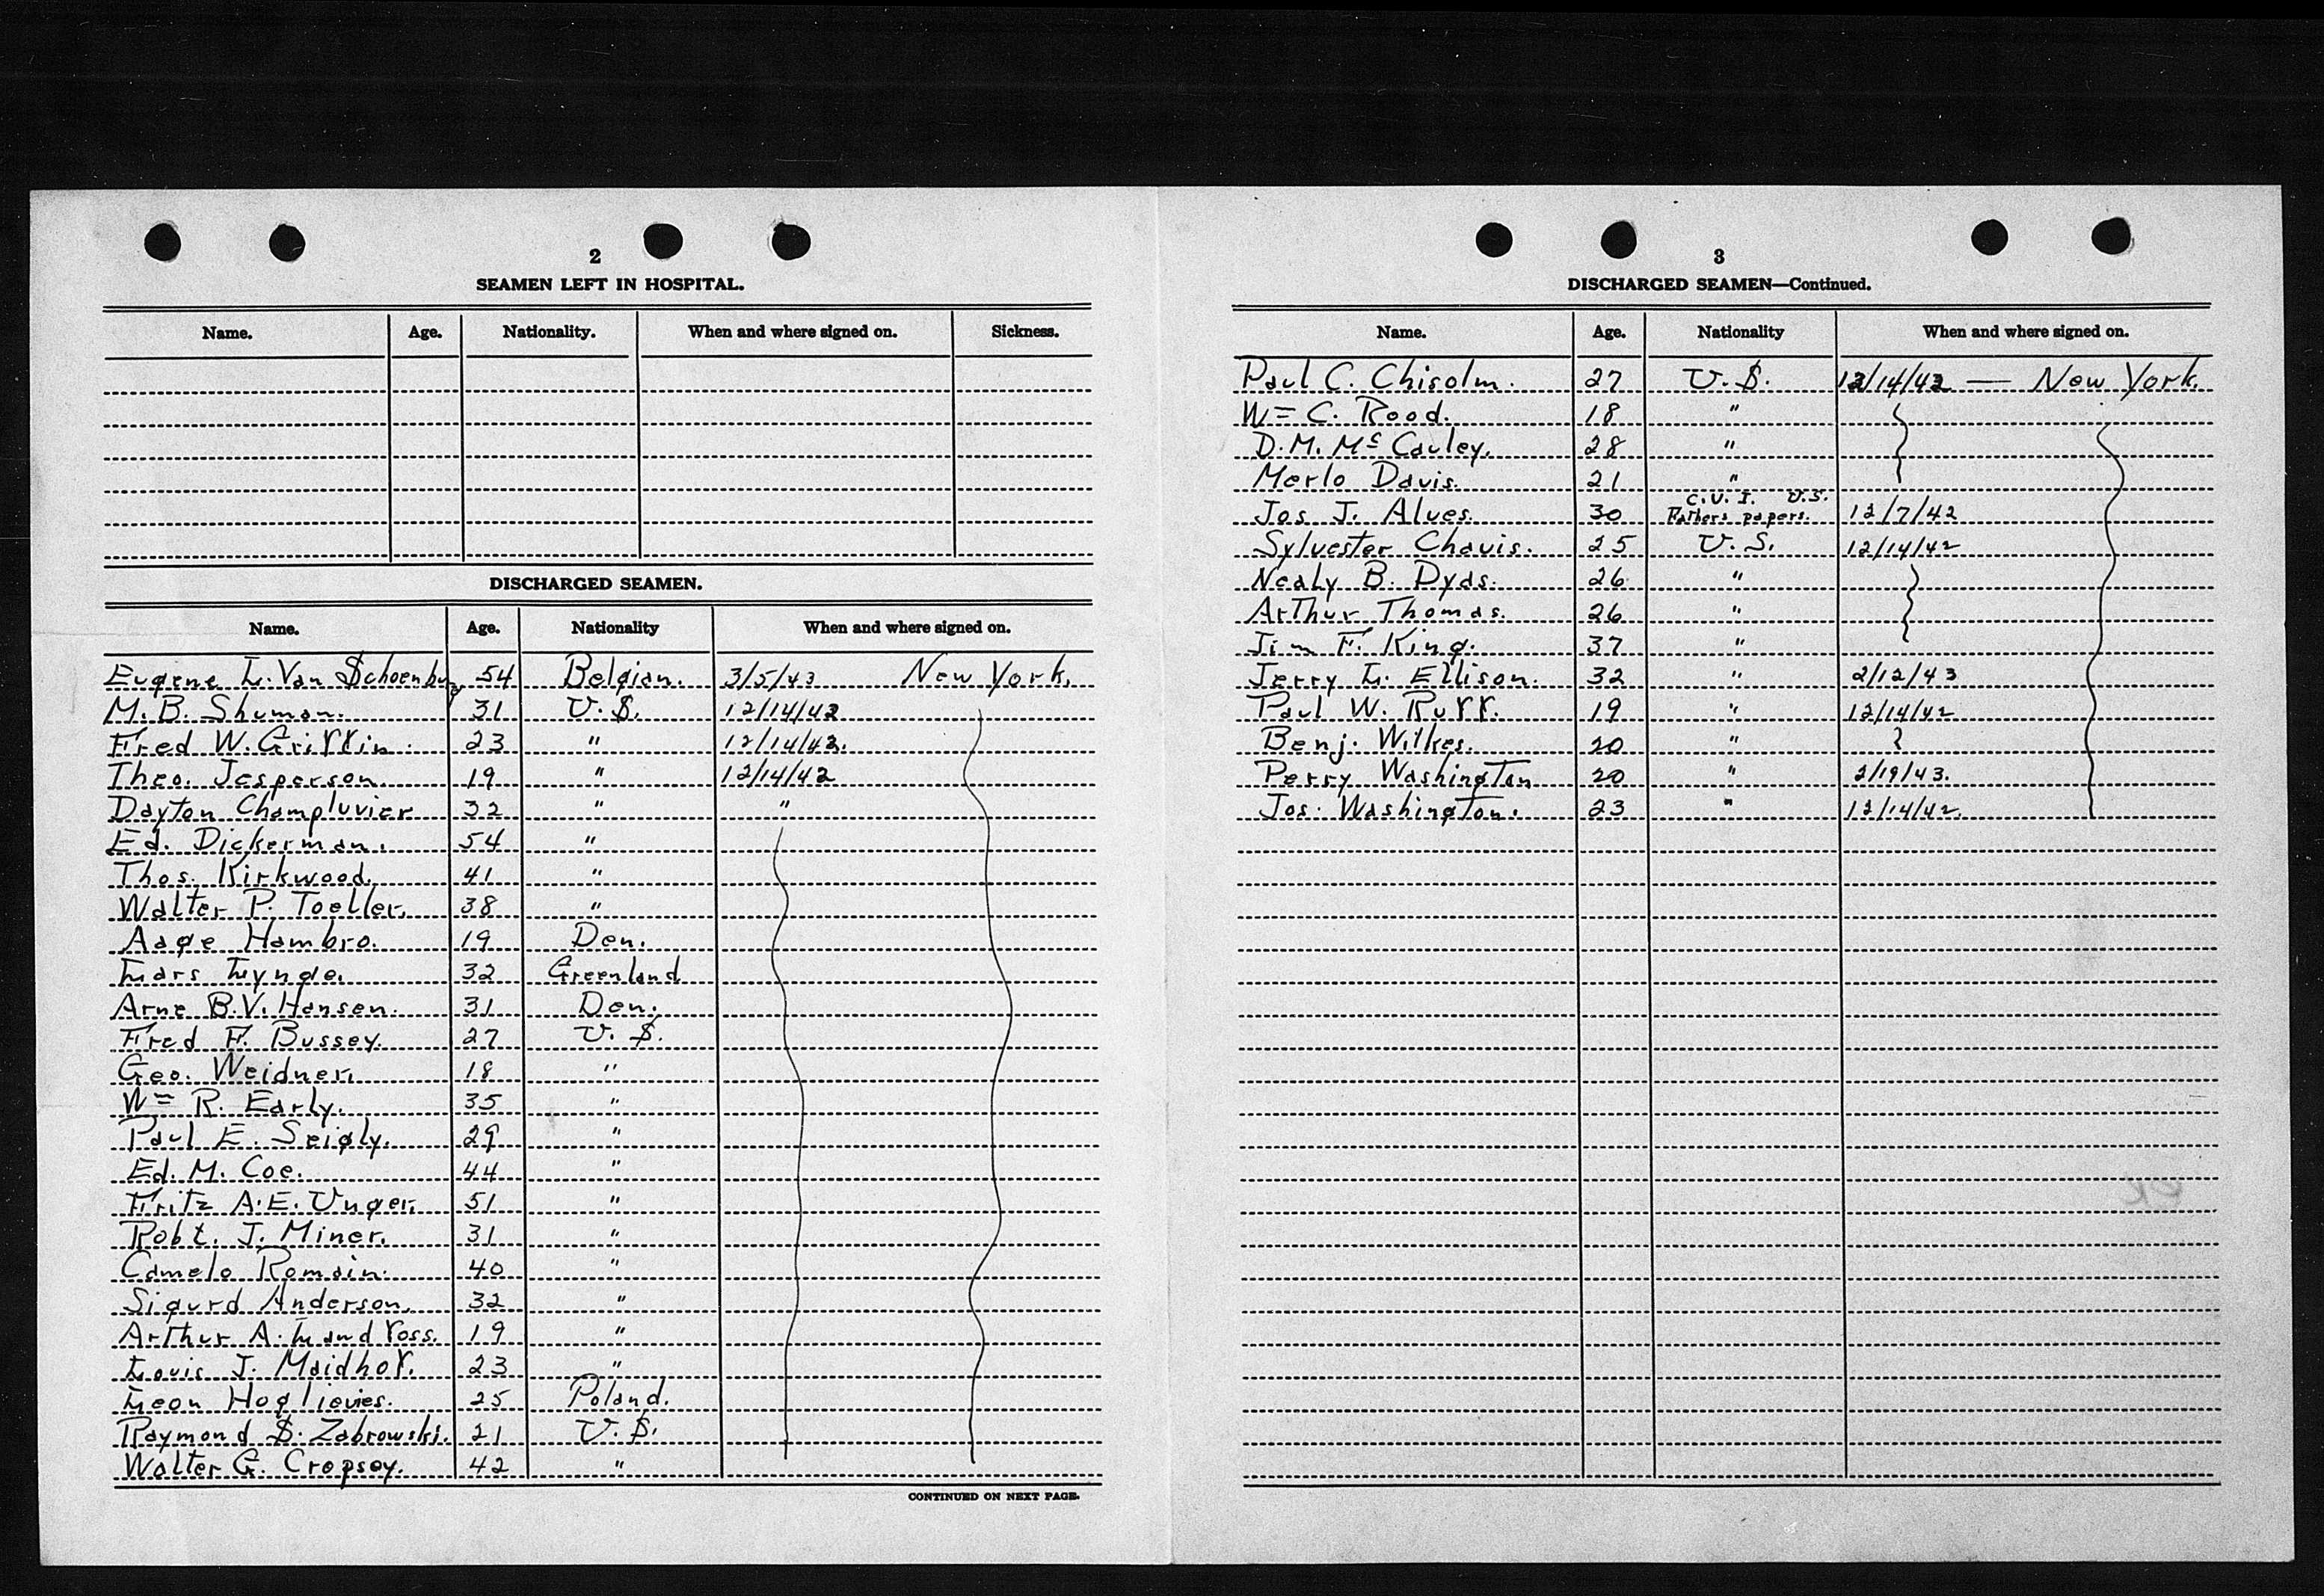 2
SEAMEN LEFT IN HOSPITAL.
Name. Age. Nationality. When and where signed on. Sickness.
DISCHARGED SEAMEN.
Name. Age. Nationality When and where signed on.
Eugene L. Van Schoenburg 54 Belgian. 3/5/43 New York.
M. B. Shuman. 31 U.S. 12/14/42
Fred W. Griffin. 23 " 12/14/42.
Theo. Jesperson. 19 " 12/14/42
Dayton Champluvier 32 " "
Ed. Dickerman. 54 "
Thos. Kirkwood. 41 "
Walter P. Toeller. 38 "
Aage Hambro. 19 Den.
Lars Lynge. 32 Greenland
Arne B.V. Hansen. 31 Den.
Fred F. Bussey. 27 U.S.
Geo. Weidner. 18 "
Wm R. Early. 35 "
Paul E. Seigly. 29 "
Ed. M. Coe. 44 "
Fritz A.E. Unger. 51 "
Robt. J. Miner. 31 "
Camelo Romain. 40 "
Sigurd Anderson. 32 "
Arthur A. Landfoss. 19 "
Louis J. Maidhof. 23 "
Leon Hoglievies. 25 Poland.
Raymond S. Zabrowski. 21 U.S.
Walter G. Cropsey. 42 "
CONTINUED ON NEXT PAGE.
3
DISCHARGED SEAMEN—Continued.
Name. Age. Nationality When and where signed on.
Paul C. Chisolm. 27 U.S. 12/14/42 — New York.
Wm C. Rood. 18 "
D.M. McCauley. 28 "
Merlo Davis. 21 "
C.V.I. U.S.
Jos J. Alves. 30 Fathers papers. 12/7/42
Sylvester Chavis. 25 U.S. 12/14/42
Nealy B. Dyas. 26 "
Arthur Thomas. 26 "
Jim F. King. 37 "
Jerry L. Ellison. 32 " 2/12/43
Paul W. Ruff. 19 " 12/14/42
Benj. Wilkes. 20 "
Perry Washington 20 " 2/19/43.
Jos. Washington. 23 " 12/14/42.